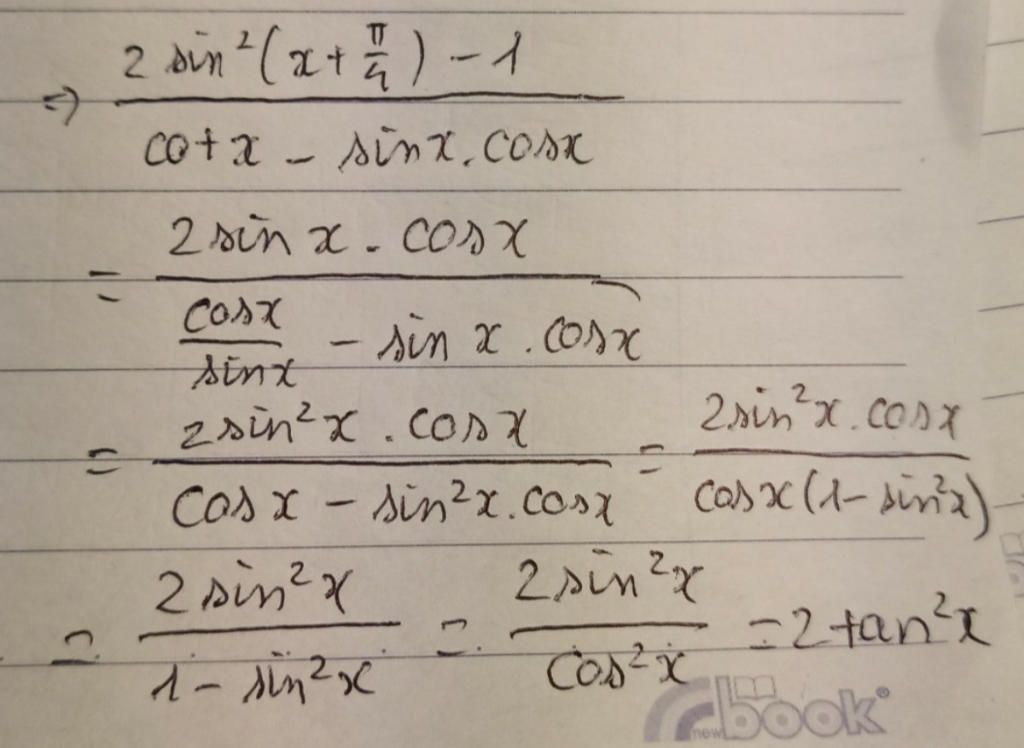 ⇒ \frac{2 sin^2(x + \frac{π}{4}) - 1}{cot x - sin x . cos x}
= \frac{2 sin x . cos x}{\frac{cos x}{sin x} - sin x . cos x}
= \frac{2 sin^2 x . cos x}{cos x - sin^2 x . cos x} = \frac{2 sin^2 x . cos x}{cos x (1 - sin^2 x)}
= \frac{2 sin^2 x}{1 - sin^2 x} = \frac{2 sin^2 x}{cos^2 x} = 2 tan^2 x
new book®